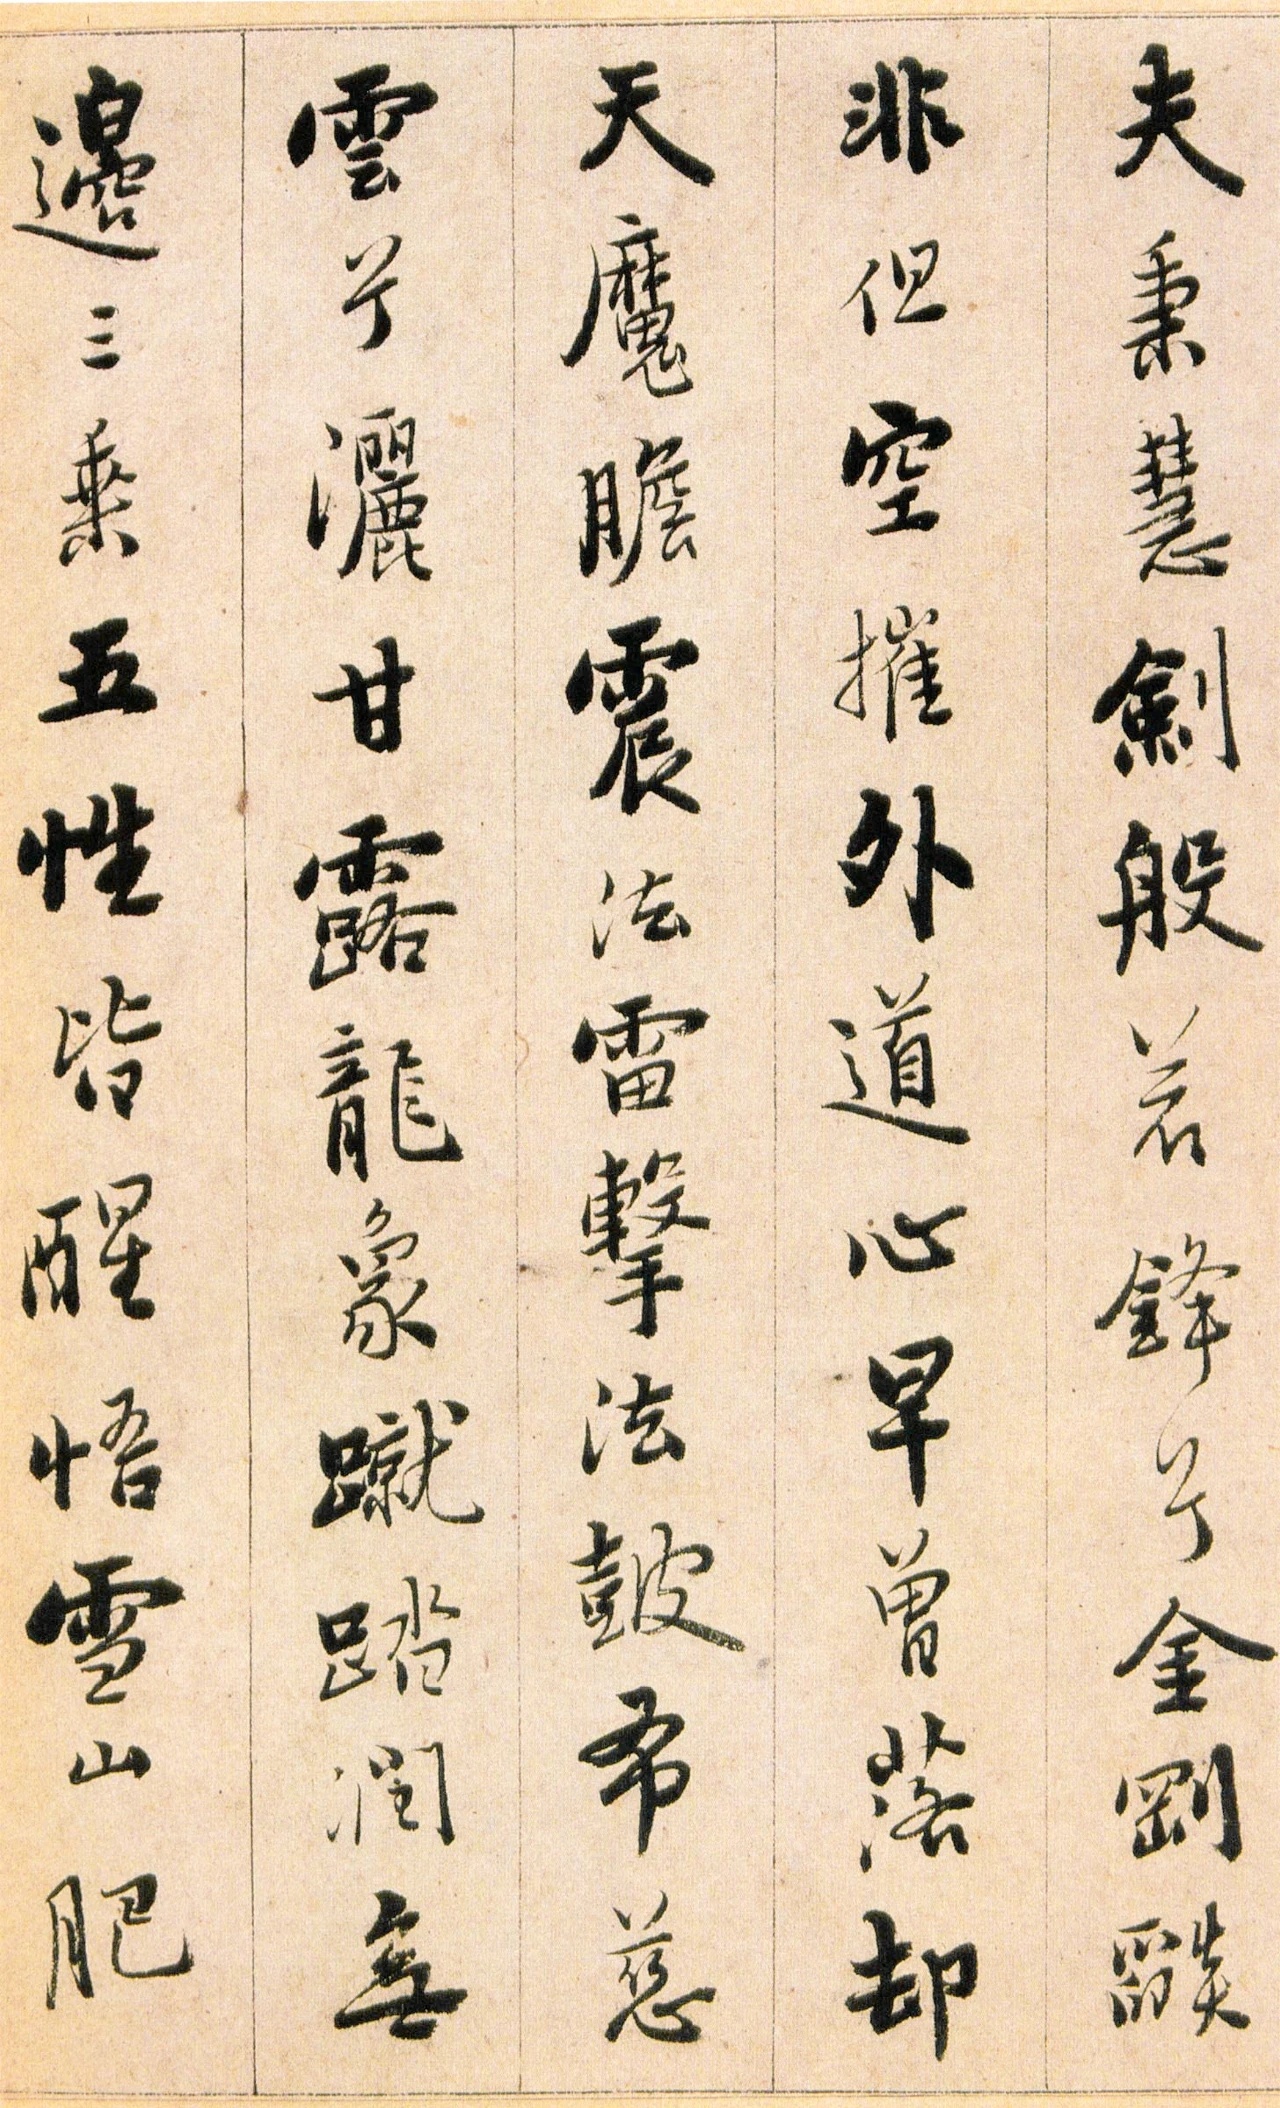 夫秉慧劍般若鋒兮金剛燄
非但空摧外道心早曾落却
天魔膽震法雷擊法鼓布慈
雲兮灑甘露龍象蹴踏潤無
邊三乘五性皆醒悟雪山肥